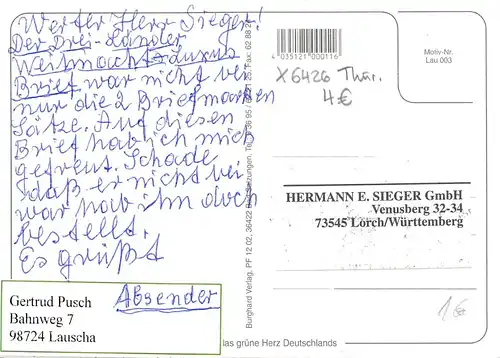 Werter Herr Sieger!
Der Drei-Länder
Weihnachts-Luxus
Brief war nicht bei
nur die 2 Briefmarken
Sätze. Auf diesen
Brief hab ich mich
gefreut. Schade
daß er nicht bei
war hab ihn doch
bestellt.
Es grüßt
Absender
Gertrud Pusch
Bahnweg 7
98724 Lauscha
Burghard Verlag, PF 12 02, 36422
4 015121 000116
X6426 Thür.
4€
Motiv-Nr.
Lau 003
HERMANN E. SIEGER GmbH
Venusberg 32-34
73545 Lorch/Württemberg
1€
das grüne Herz Deutschlands